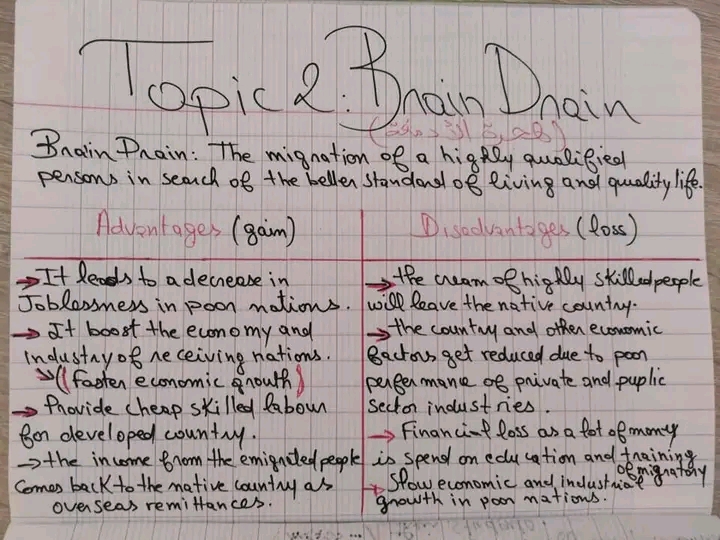 Topic 2: Brain Drain
(هجرة الأدمغة)
Brain Drain: The migration of a highly qualified
persons in search of the better standard of living and quality life.
Advantages (gain)
→ It leads to a decrease in
Joblessness in poor nations.
→ It boost the economy and
industry of receiving nations.
↘ (faster economic growth)
→ Provide cheap skilled labour
for developed country.
→ the income from the emigrated people
comes back to the native country as
overseas remittances.
Disadvantages (loss)
→ the cream of highly skilled people
will leave the native country.
→ the country and other economic
factors get reduced due to poor
performance of private and puplic
sector industries.
→ Financial loss as a lot of money
is spend on education and training
of migratory
→ Slow economic and industrial
growth in poor nations.